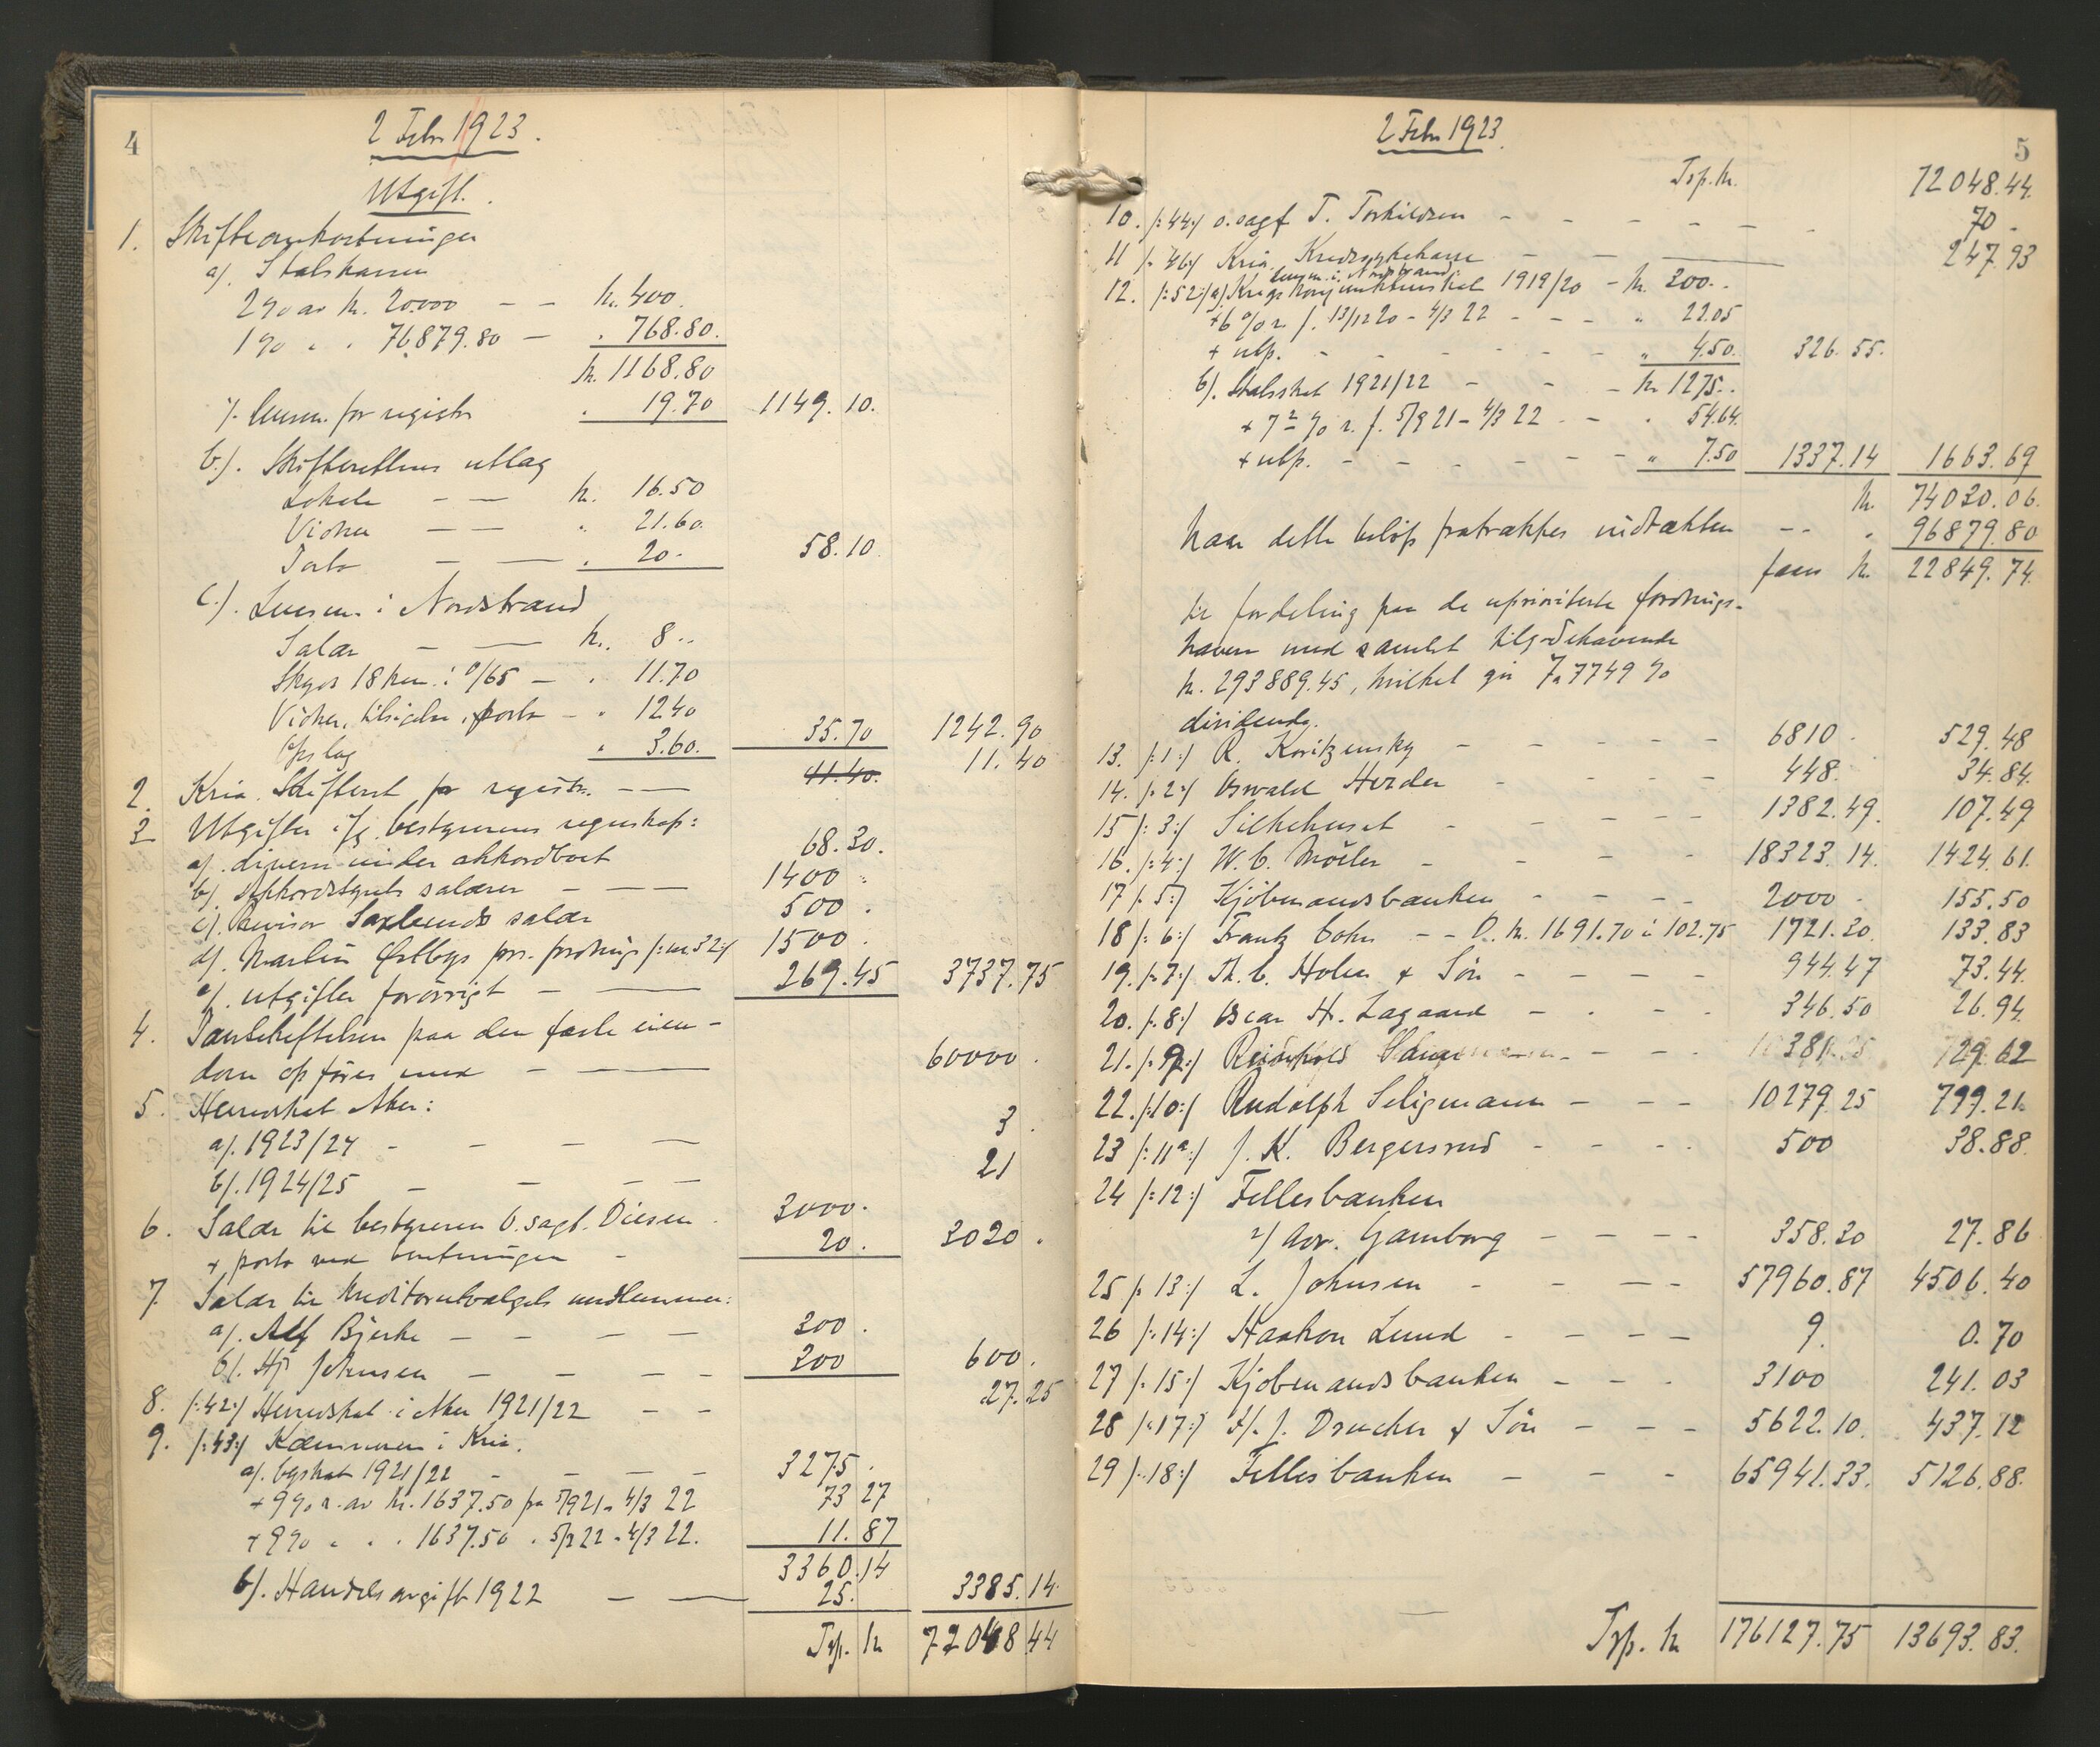 4
2 Febr 1923.
Utgift.
1. Skifteomkostninger
a/. Statskassen
2 % av kr. 20.000 - - kr. 400.
1 % " " 76879.80 - " 768.80.
kr. 1168.80
÷ lensm. for registr " 19.70 1149.10.
b./. Skifterettens utlæg
Lokale - - kr. 16.50
Vidner - - " 21.60.
Porto - - " 20.- 58.10
c./. Lensm. i Nordstrand
Salær - - kr. 8.-
Skyds 18 km. i 0/65 - " 11.70
Vidner, tilsigelse, porto - " 12.40
Opslag " 3.60. 35.70 1242.90
2. Kria. Skifteret for registr. - - 41.40. 11.40
3 Utgifter ifg. bestyrerens regnskap:
a/. diverse under akkordboet 68.30.
b/. Akkordstyrets salærer - - - 1400 -
c/. Revisor Saxlunds salær 500.
d/. Martin Østbys pri. fordring /:nr. 32:/ 1500.
e/. utgifter forøvrigt - - 269.45 3737.75
4. Panteheftelsen paa den faste eien-
dom opføres med - - 60000.
5. Herredskat Aker:
a/. 1923/24 - - - - 3.
b/. 1924/25 - - - - 21
6. Salær til bestyreren O.sagf. Diesen 3000.
+ porto ved 20. 3020.
7. Salær til kreditorutvalgets medlemmer:
a/. Alf Bjerke - - - - 300.
b/. Hj. Johnsen - - - - 300 600.
8. /:42:/ Herredskat i Aker 1921/22 - - 27.25
9. /:43:/ Kæmneren i Kria.
a/. byskat 1921/22 - - - - 3275.
+ 9 % r. av kr. 1637.50 fra 5/9 21 - 4/3 22 73 27
+ 9 % " " " 1637.50 " 5/2 22 - 4/3 22. 11.87
3360.14
b/. Handelsavgift 1922 - - 25. 3385.14.
Tsp. kr 72048.44
5
2 Febr 1923.
Tsp. kr. 72048.44.
10. /:44:/ o.sagf T. Torkildsen - - - - - - 70 -
11 /:46:/ Kria. Kredssykekasse - - - 247.93
lensm. i Nordstrand
12. /:52:/ a/ Krigskonjunkturskat 1919/20 - kr. 300.-
+ 6 % r. f. 13/12 20 - 4/3 22 - - - " 22.05
+ utp. - - - - - - " 4.50. 326.55.
b/. Statsskat 1921/22 - - - kr 1275.-
+ 7 2 % r. f. 5/9 21 - 4/3 22 - - " 54.64.
+ utp. - - - - - - " 7.50 1337.14 1663.69
kr. 74030.06.
Naar dette beløp fratrækkes indtækten - - " 96879.80
faaes kr. 22849.74.
til fordeling paa de uprioriterte fordrings-
havere med samlet tilgodehavende
kr. 293889.45, hvilket gir 7,7749 %
dividende.
13. /:1:/ R. Koritzinsky - - - - - 6810 - 529.48
14. /:2:/ Oswald Herder - - - 448. 34.84.
15 /:3:/ Silkehuset - - - - - 1382.49. 107.49
16. /:4:/ W. C. Möller - - - - 18323.14. 1424.61.
17 /:5:/ Kjöbmandsbanken - - - - 2000 - 155.50
18 /:6:/ Frantz Cohn - - D. kr. 1691.70 à 102.75 1721.30. 133.83
19. /:7:/ Th. C. Holm & Sön - - - - 944.47 73.44.
20. /:8:/ Oscar H. Lagaard - - - - 346.50 26.94.
21. /:9:/ - - - 381 29.62
22. /:10:/ Rudolph Seligmann - - - 10279.25 799.21.
23 /:11a:/ J. K. Bergersrud - - - - 500 38.88.
24 /:12:/ Fellesbanken
v/ Adv. Gamborg - - - - 358.30 27.86
25 /:13:/ L. Johnsen - - - - 57960.87 4506.40
26 /:14:/ Haakon Lund - - - - 9. 0.70
27 /:15:/ Kjöbmandsbanken - - - 3100 241.03
28 /:17:/ A/. J. Drucker & Sön - - - 5622.10. 437.12
29 /:18:/ Fellesbanken - - - 65941.33. 5126.88.
Tsp. kr 176127.75 13693.83.